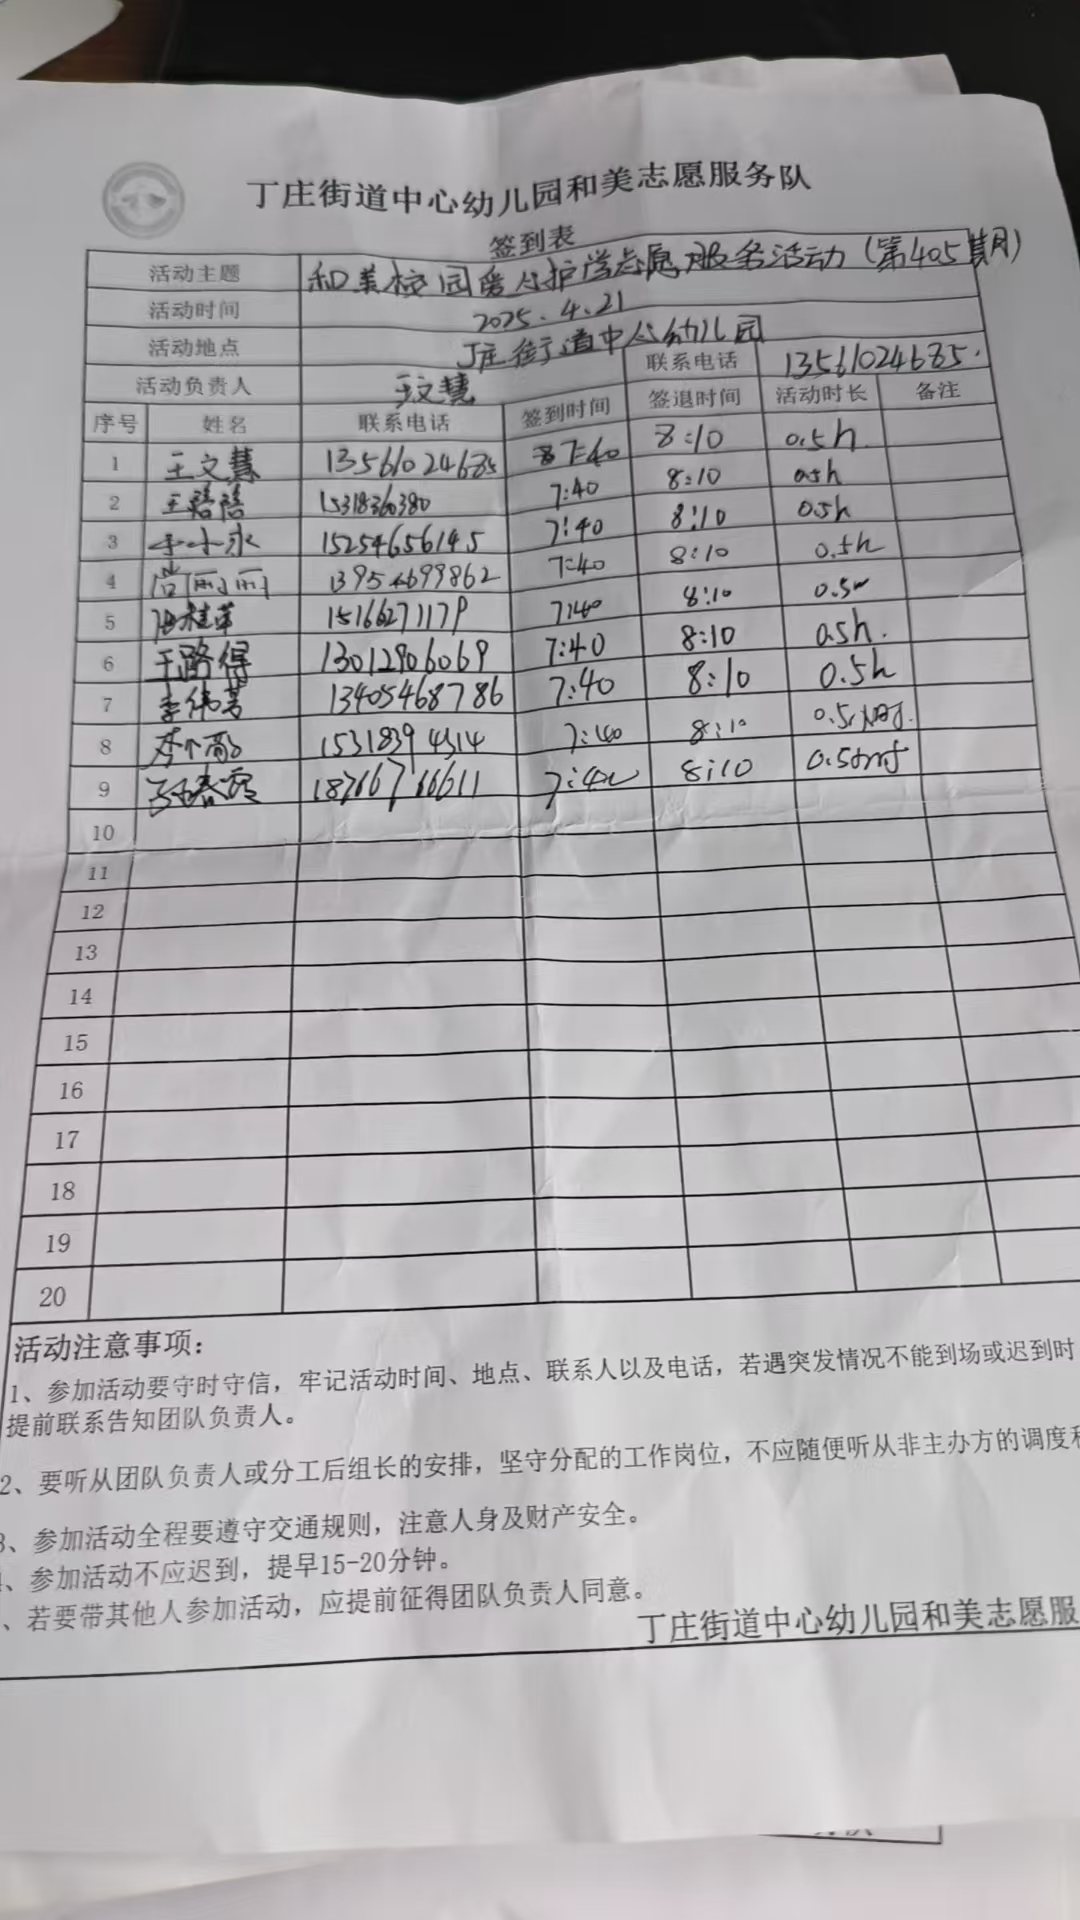 丁庄街道中心幼儿园和美志愿服务队
签到表
活动主题 和美校园爱心护学志愿服务活动(第405期)
活动时间 2025.4.21
活动地点 丁庄街道中心幼儿园
活动负责人 王文慧 联系电话 13561024685.
序号 姓名 联系电话 签到时间 签退时间 活动时长 备注
1 王文慧 13561024685 7:40 8:10 0.5h
2 15318360380 7:40 8:10 0.5h
3 李小永 15254656145 7:40 8:10 0.5h
4 尚丽丽 13954699862 7:40 8:10 0.5h
5 15166271179 7:40 8:10 0.5h
6 王路得 13012906069 7:40 8:10 0.5h.
7 李伟芳 13405468786 7:40 8:10 0.5h
8 15318394314 7:40 8:10 0.5小时.
9 18766766611 7:40 8:10 0.5小时
10
11
12
13
14
15
16
17
18
19
20
活动注意事项：
1、参加活动要守时守信，牢记活动时间、地点、联系人以及电话，若遇突发情况不能到场或迟到时
提前联系告知团队负责人。
2、要听从团队负责人或分工后组长的安排，坚守分配的工作岗位，不应随便听从非主办方的调度和
3、参加活动全程要遵守交通规则，注意人身及财产安全。
、参加活动不应迟到，提早15-20分钟。
、若要带其他人参加活动，应提前征得团队负责人同意。
丁庄街道中心幼儿园和美志愿服